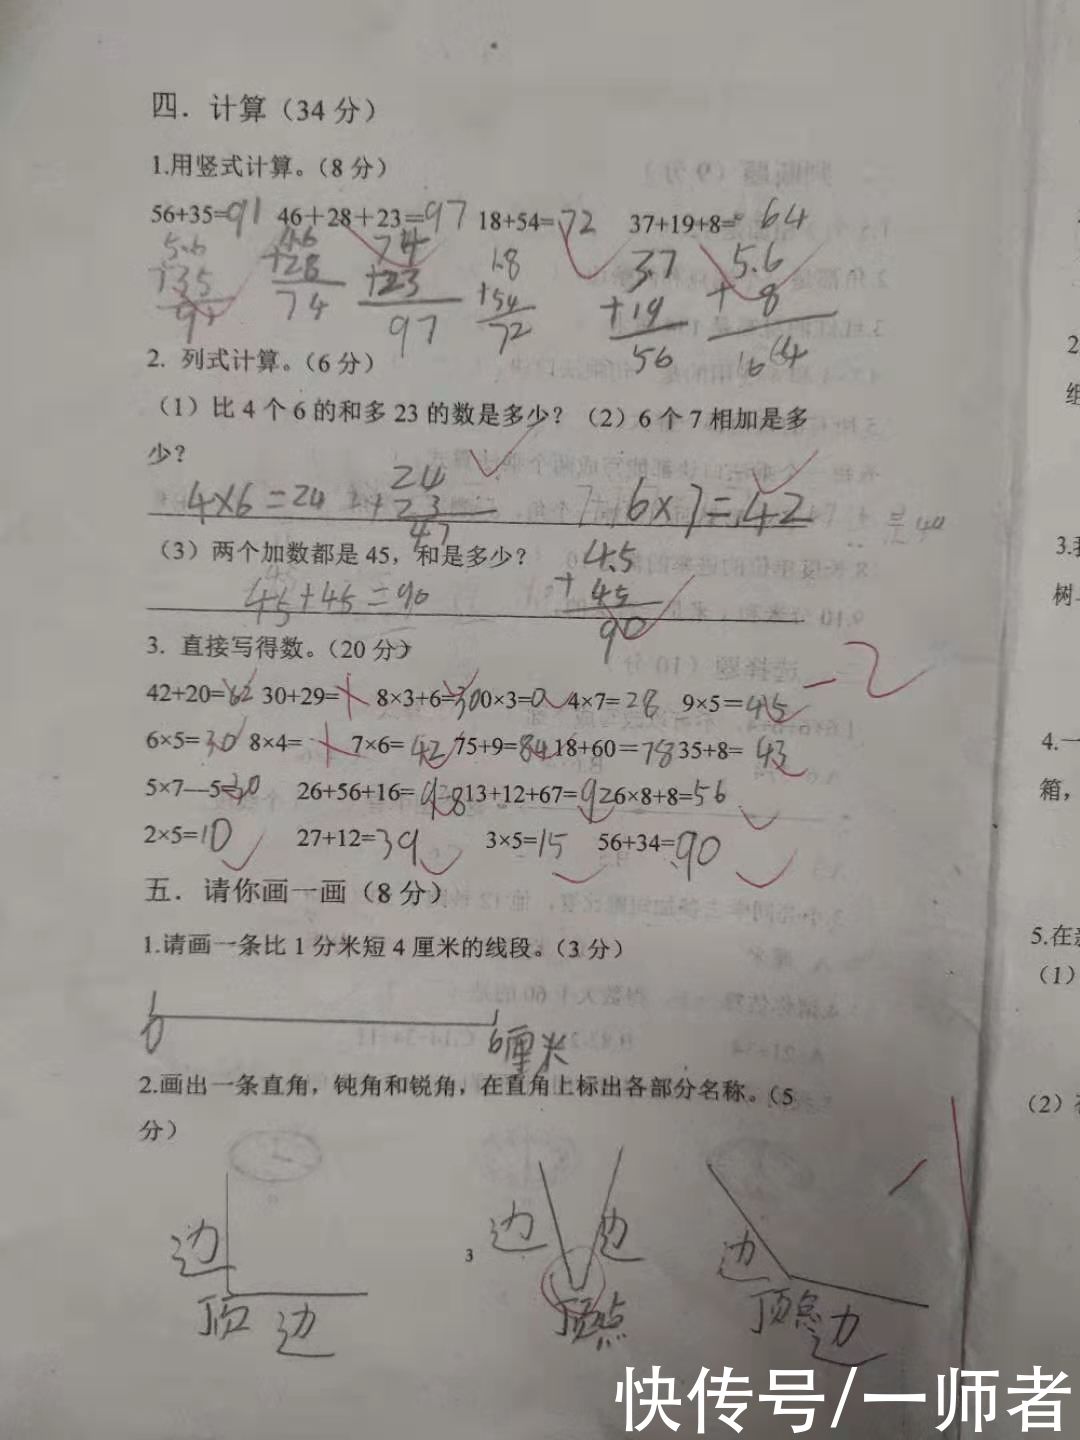 四．计算（34 分）
1.用竖式计算。（8 分）
56+35=91 46＋28＋23＝97 18+54=72 37+19+8=64
56 46 74 18 37 56
+35 +28 +23 +54 +19 +8
91 74 97 72 56 64
2. 列式计算。（6 分）
（1）比 4 个 6 的和多 23 的数是多少？（2）6 个 7 相加是多
少？
24
4×6=24 +23 6×7=42
47
（3）两个加数都是 45，和是多少？ 45
45+45=90 +45
90
3. 直接写得数。（20 分） -2
42+20=62 30+29= 8×3+6=30 0×3=0 4×7=28 9×5＝45
6×5=30 8×4= 7×6=42 75+9=84 18+60＝78 35+8=43
5×7—5=30 26+56+16=98 13+12+67=92 6×8+8=56
2×5=10 27+12=39 3×5=15 56+34=90
五．请你画一画（8 分）
1.请画一条比 1 分米短 4 厘米的线段。（3 分）
0 6厘米
2.画出一条直角，钝角和锐角，在直角上标出各部分名称。（5
分）
边 边 边 边
3
顶 边 顶点 顶点 边
2
组
3.
树
4.一
箱，
5.在
（1）
（2）
快传号/一师者